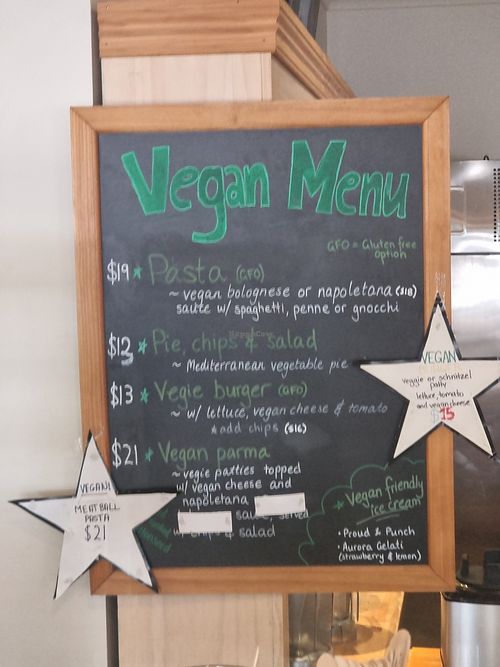 Vegan Menu
GFO = Gluten free
option
$19 * Pasta (GFO)
~ vegan bolognese or napoletana ($18)
saute w/ spaghetti, penne or gnocchi
$12 * Pie, chips & salad
~ Mediterranean vegetable pie
$13 * Vegie burger (GFO)
~ w/ lettuce, vegan cheese & tomato
* add chips ($16)
$21 * Vegan parma
~ vegie patties topped
w/ vegan cheese and
napoletana
served
& salad
* Vegan friendly
ice cream
• Proud & Punch
• Aurora Gelati
(strawberry & lemon)
VEGAN
veggie or schnitzel
patty
lettuce, tomato
and vegan cheese
$15
VEGAN!
MEATBALL
PASTA
$21